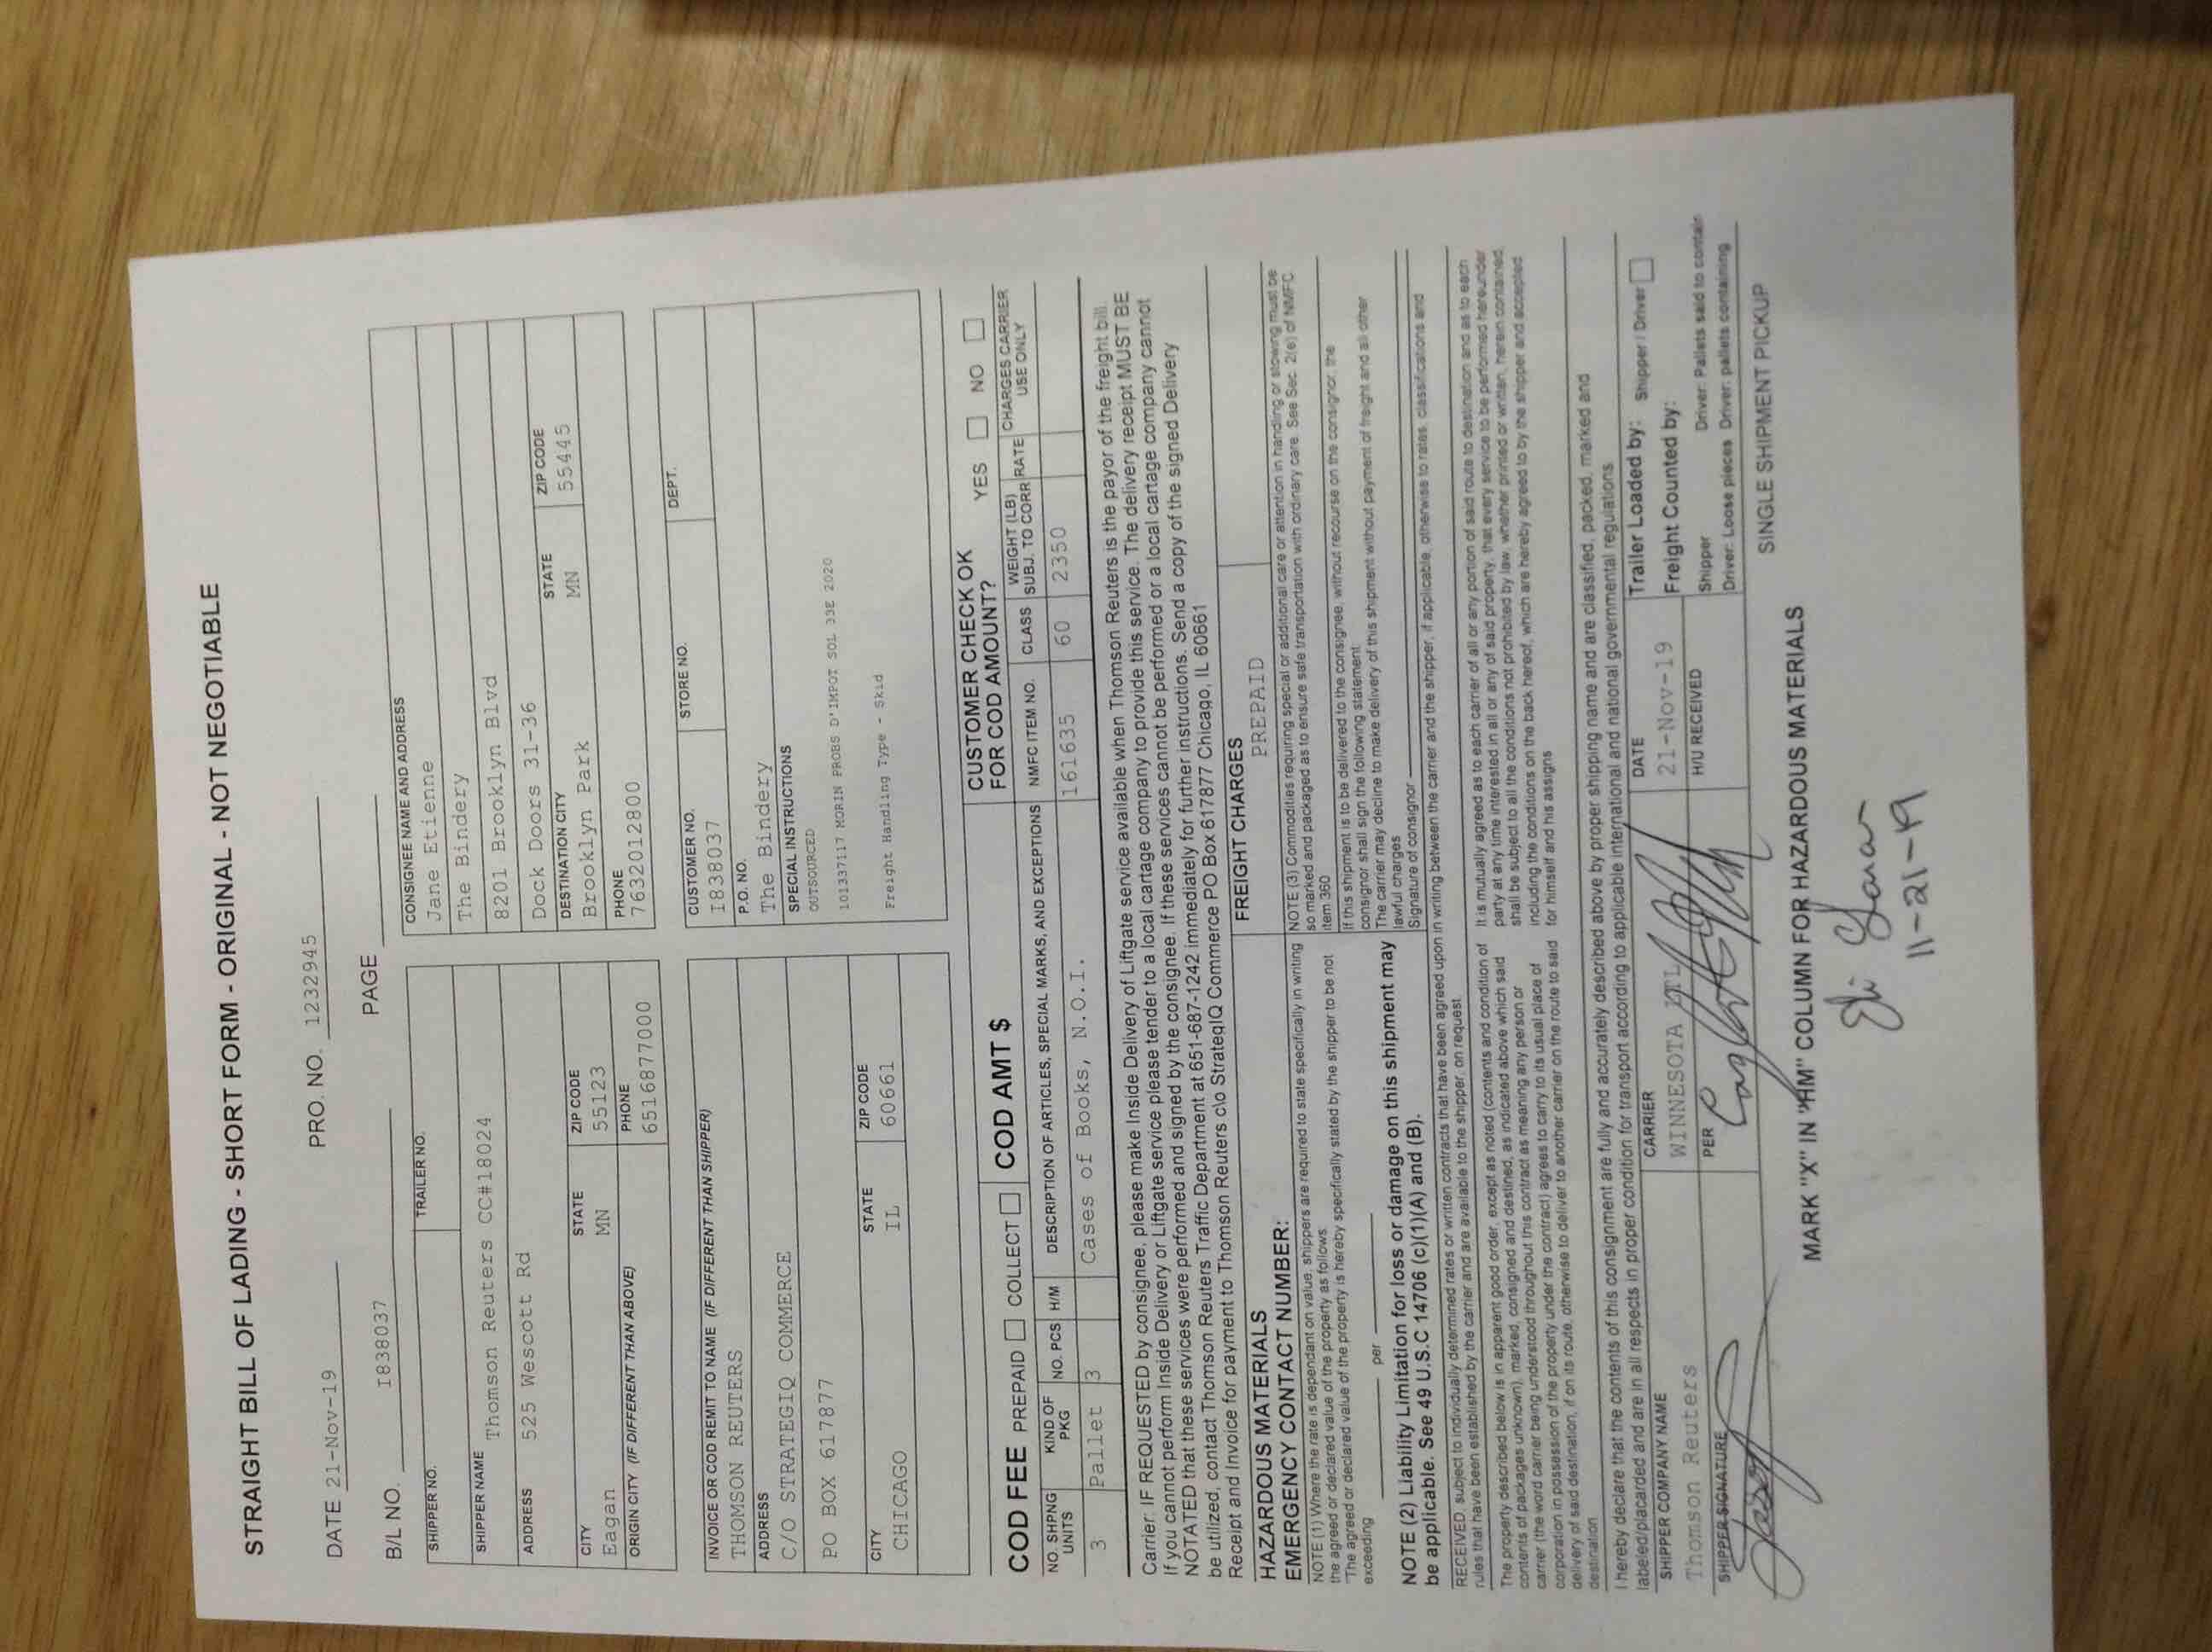 STRAIGHT BILL OF LADING - SHORT FORM - ORIGINAL - NOT NEGOTIABLE
DATE 21-Nov-19
PRO. NO. 1232945
B/L NO. I838037
PAGE
SHIPPER NO.
TRAILER NO.
SHIPPER NAME
Thomson Reuters CC#18024
ADDRESS
525 Wescott Rd
CITY
STATE
ZIP CODE
Eagan
MN
55123
ORIGIN CITY (IF DIFFERENT THAN ABOVE)
PHONE
6516877000
CONSIGNEE NAME AND ADDRESS
Jane Etienne
The Bindery
8201 Brooklyn Blvd
Dock Doors 31-36
DESTINATION CITY
STATE
ZIP CODE
Brooklyn Park
MN
55445
PHONE
7632012800
INVOICE OR COD REMIT TO NAME (IF DIFFERENT THAN SHIPPER)
THOMSON REUTERS
ADDRESS
C/O STRATEGIQ COMMERCE
PO BOX 617877
CITY
STATE
ZIP CODE
CHICAGO
IL
60661
CUSTOMER NO.
STORE NO.
DEPT.
I838037
P.O. NO.
The Bindery
SPECIAL INSTRUCTIONS
OUTSOURCED
101337117 MORIN PROBS D'IMPOT SOL 33E 2020
Freight Handling Type - Skid
COD FEE PREPAID COLLECT
COD AMT $
CUSTOMER CHECK OK
FOR COD AMOUNT?
YES NO
NO. SHPNG UNITS
KIND OF PKG
NO. PCS
H/M
DESCRIPTION OF ARTICLES, SPECIAL MARKS, AND EXCEPTIONS
NMFC ITEM NO.
CLASS
WEIGHT (LB) SUBJ. TO CORR
RATE
CHARGES CARRIER USE ONLY
3 Pallet 3 Cases of Books, N.O.I. 161635 60 2350
Carrier: IF REQUESTED by consignee, please make Inside Delivery of Liftgate service available when Thomson Reuters is the payor of the freight bill.
If you cannot perform Inside Delivery or Liftgate service please tender to a local cartage company to provide this service. The delivery receipt MUST BE
NOTATED that these services were performed and signed by the consignee. If these services cannot be performed or a local cartage company cannot
be utilized, contact Thomson Reuters Traffic Department at 651-687-1242 immediately for further instructions. Send a copy of the signed Delivery
Receipt and Invoice for payment to Thomson Reuters c\o StrateqIQ Commerce PO Box 617877 Chicago, IL 60661
HAZARDOUS MATERIALS
EMERGENCY CONTACT NUMBER:
FREIGHT CHARGES
PREPAID
NOTE (1) Where the rate is dependant on value, shippers are required to state specifically in writing
the agreed or declared value of the property as follows
"The agreed or declared value of the property is hereby specifically stated by the shipper to be not
exceeding per
NOTE (2) Liability Limitation for loss or damage on this shipment may
be applicable. See 49 U.S.C 14706 (c)(1)(A) and (B).
NOTE (3) Commodities requiring special or additional care or attention in handling or stowing must be
so marked and packaged as to ensure safe transportation with ordinary care. See Sec. 2(e) of NMFC
item 360
If this shipment is to be delivered to the consignee, without recourse on the consignor, the
consignor shall sign the following statement
The carrier may decline to make delivery of this shipment without payment of freight and all other
lawful charges
Signature of consignor
RECEIVED, subject to individually determined rates or written contracts that have been agreed upon in writing between the carrier and the shipper, if applicable, otherwise to rates, classifications and
rules that have been established by the carrier and are available to the shipper, on request
The property described below is in apparent good order, except as noted (contents and condition of
contents of packages unknown), marked, consigned and destined, as indicated above which said
carrier (the word carrier being understood throughout this contract as meaning any person or
corporation in possession of the property under the contract) agrees to carry to its usual place of
delivery of said destination, if on its route, otherwise to deliver to another carrier on the route to said
destination
It is mutually agreed as to each carrier of all or any portion of said route to destination and as to each
party at any time interested in all or any of said property, that every service to be performed hereunder
shall be subject to all the conditions not prohibited by law, whether printed or written, herein contained,
including the conditions on the back hereof, which are hereby agreed to by the shipper and accepted
for himself and his assigns
I hereby declare that the contents of this consignment are fully and accurately described above by proper shipping name and are classified, packed, marked and
labeled/placarded and are in all respects in proper condition for transport according to applicable international and national governmental regulations
SHIPPER COMPANY NAME
Thomson Reuters
CARRIER
WINNESOTA
DATE
21-Nov-19
Trailer Loaded by: Shipper / Driver
Freight Counted by:
SHIPPER SIGNATURE
PER
H/U RECEIVED
Shipper Driver: Pallets said to contain
Driver: Loose pieces Driver: pallets containing
MARK "X" IN "HM" COLUMN FOR HAZARDOUS MATERIALS
SINGLE SHIPMENT PICKUP
11-21-19